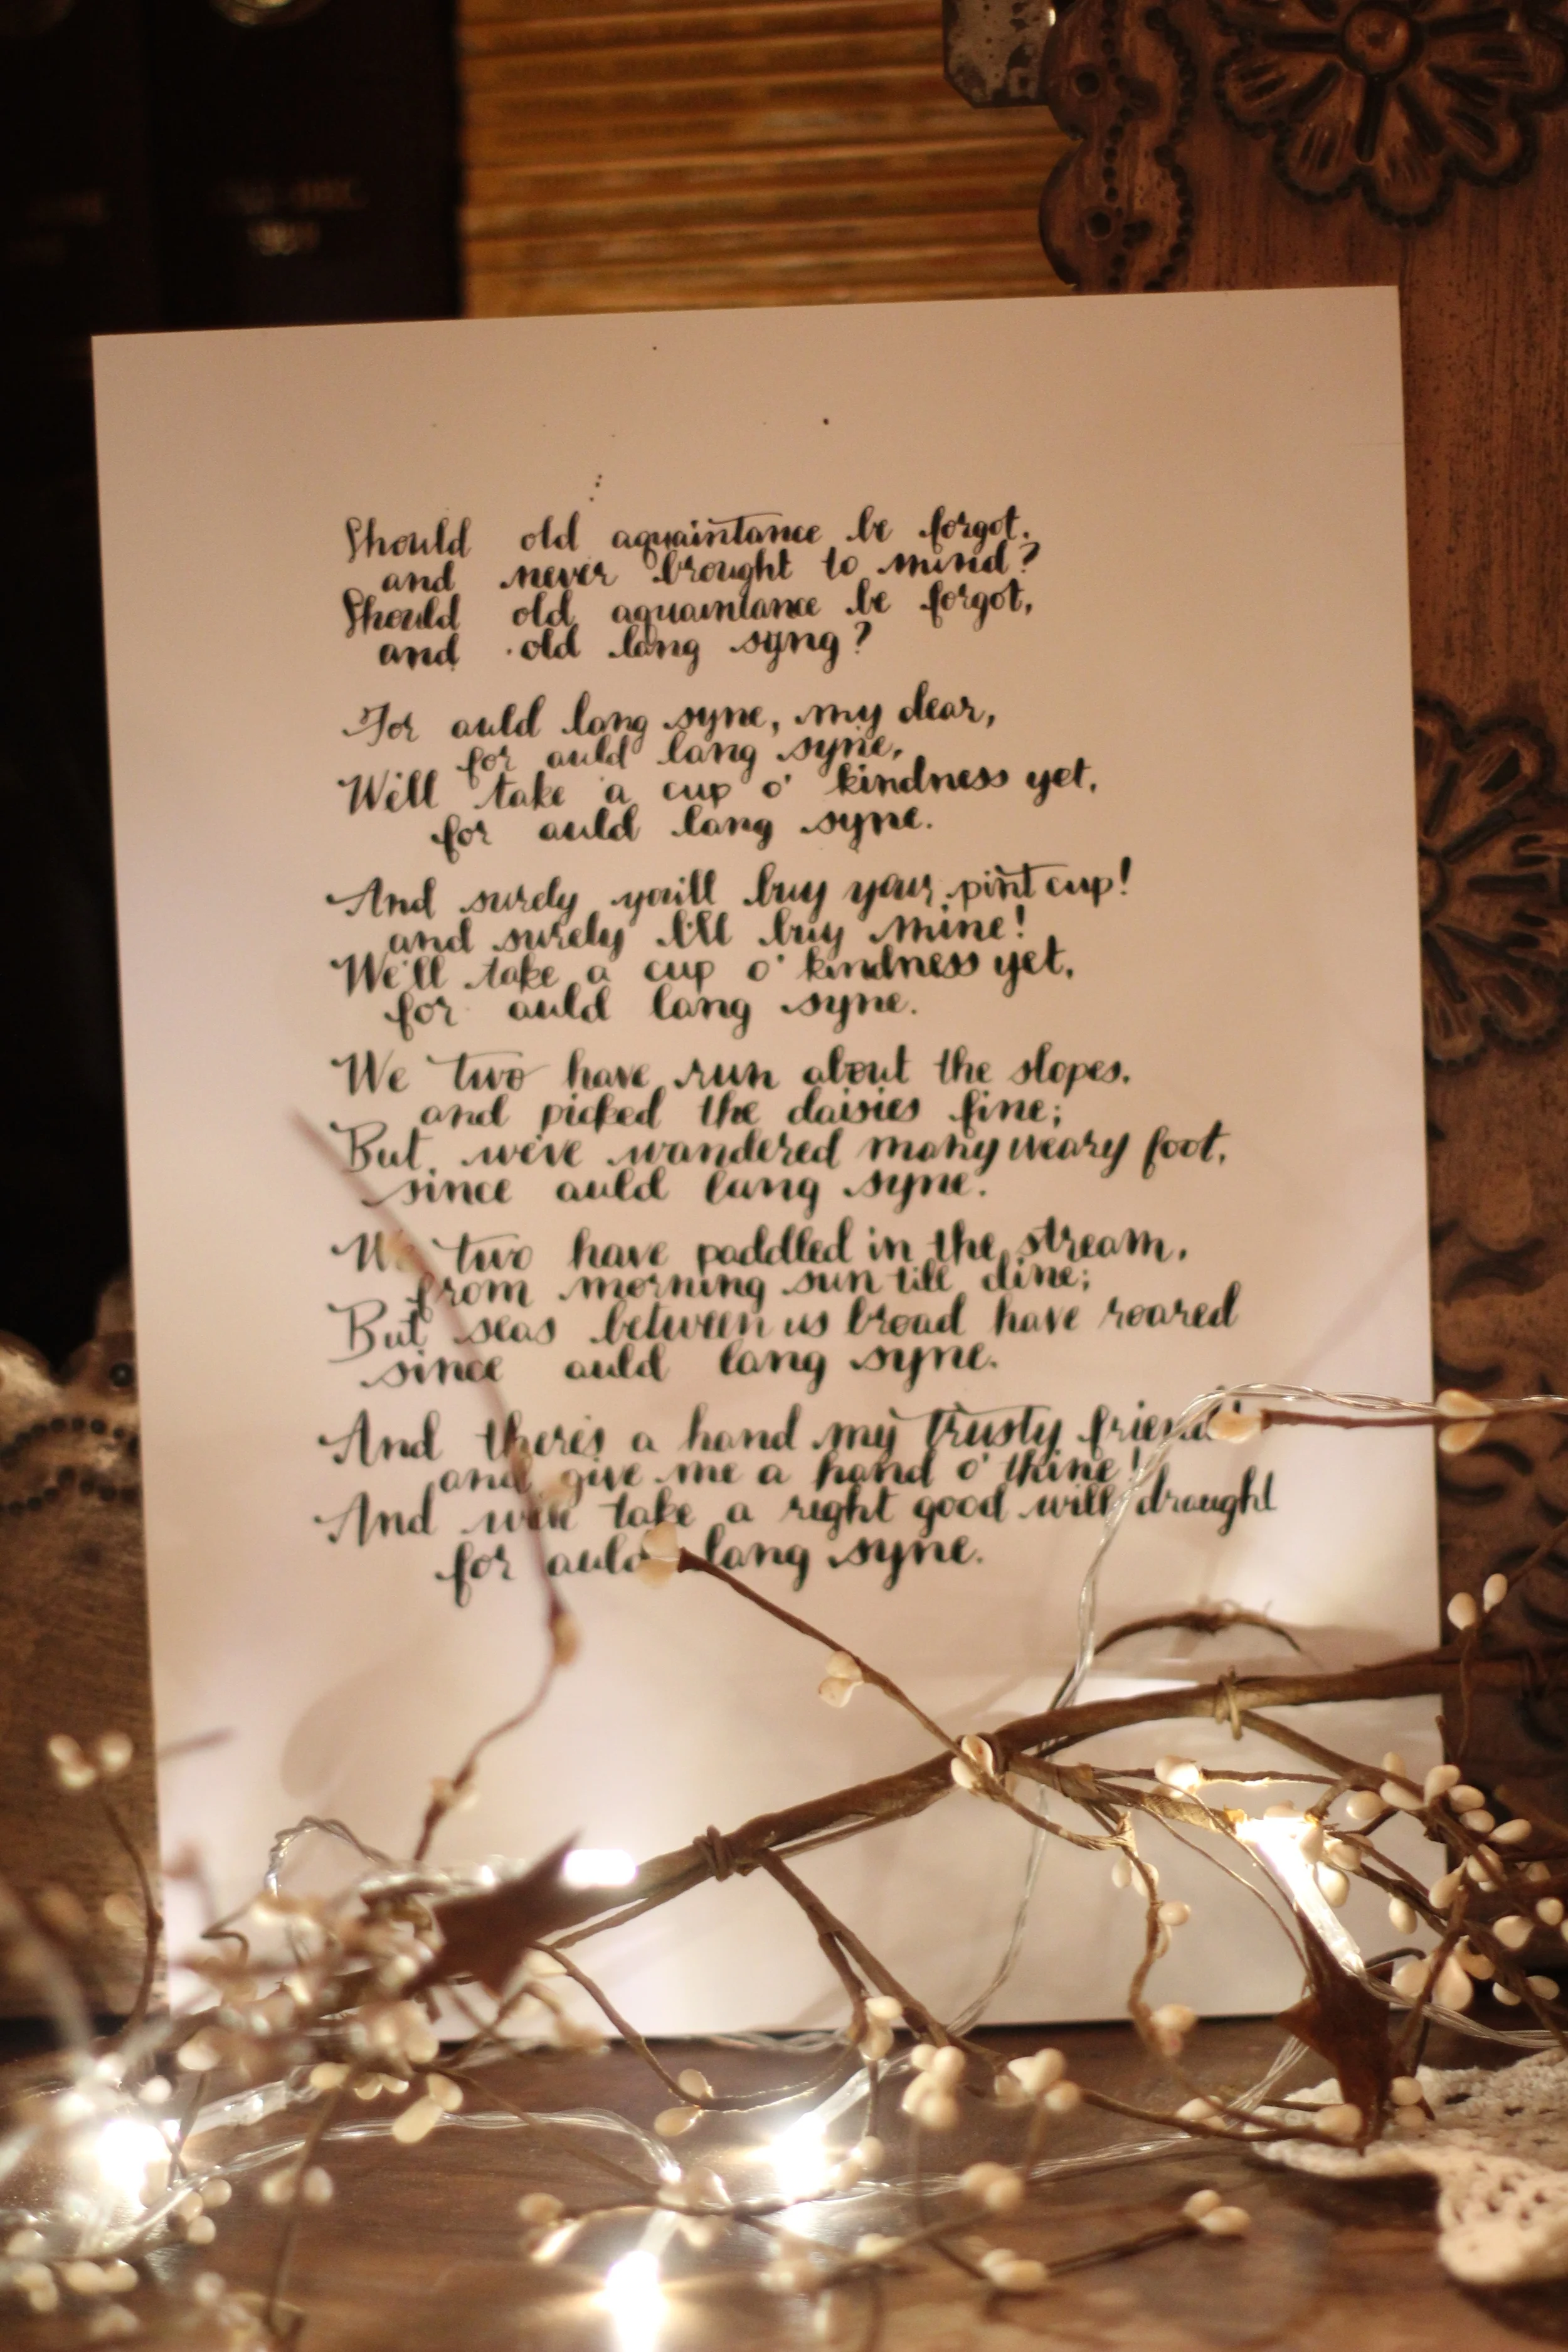 Should old aquaintance be forgot.
and never brought to mind?
Should old aquaintance be forgot,
and old lang syng?
For auld lang syne, my dear,
for auld lang syne,
Will take a cup o' kindness yet,
for auld lang syne.
And surely you'll buy your pint cup!
and surely I'll buy mine!
We'll take a cup o' kindness yet,
for auld lang syne.
We two have run about the slopes.
and picked the daisies fine;
But we've wandered many weary foot,
since auld lang syne.
We two have paddled in the stream,
from morning sun till dine;
But seas between us broad have roared
since auld lang syne.
And there's a hand my trusty friend!
and give me a hand o' thine!
And we'll take a right good will draught
for auld lang syne.